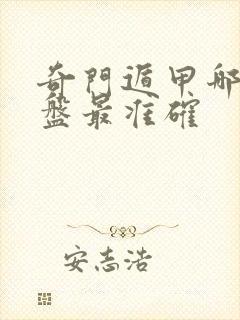 奇門遁甲哪
盤最准確
安志浩